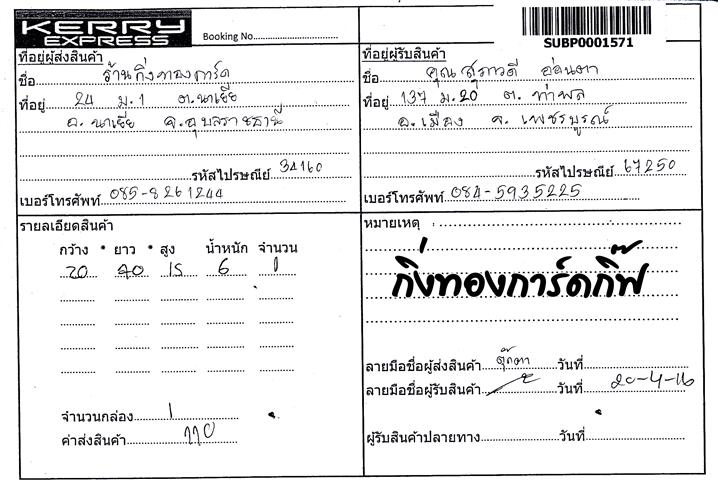 KERRY
EXPRESS
Booking No.
SUBP0001571
ที่อยู่ผู้ส่งสินค้า
ชื่อ ร้านกิ่งทองการ์ด
ที่อยู่ 24 ม.1 ต.นาเยีย
อ.นาเยีย จ.อุบลราชธานี
รหัสไปรษณีย์ 34160
เบอร์โทรศัพท์ 085-8261244
ที่อยู่ผู้รับสินค้า
ชื่อ คุณ สุภาวดี อ่อนตา
ที่อยู่ 137 ม.20 ต. ท่าพล
อ.เมือง จ. เพชรบูรณ์
รหัสไปรษณีย์ 67250
เบอร์โทรศัพท์ 084-5935225
รายละเอียดสินค้า
กว้าง * ยาว * สูง น้ำหนัก จำนวน
20 20 15 6 1
จำนวนกล่อง 1
ค่าส่งสินค้า 110
หมายเหตุ
กิ่งทองการ์ดกิ๊ฟ
ลายมือชื่อผู้ส่งสินค้า ตุ๊กตา วันที่
ลายมือชื่อผู้รับสินค้า วันที่ 20-4-16
ผู้รับสินค้าปลายทาง วันที่